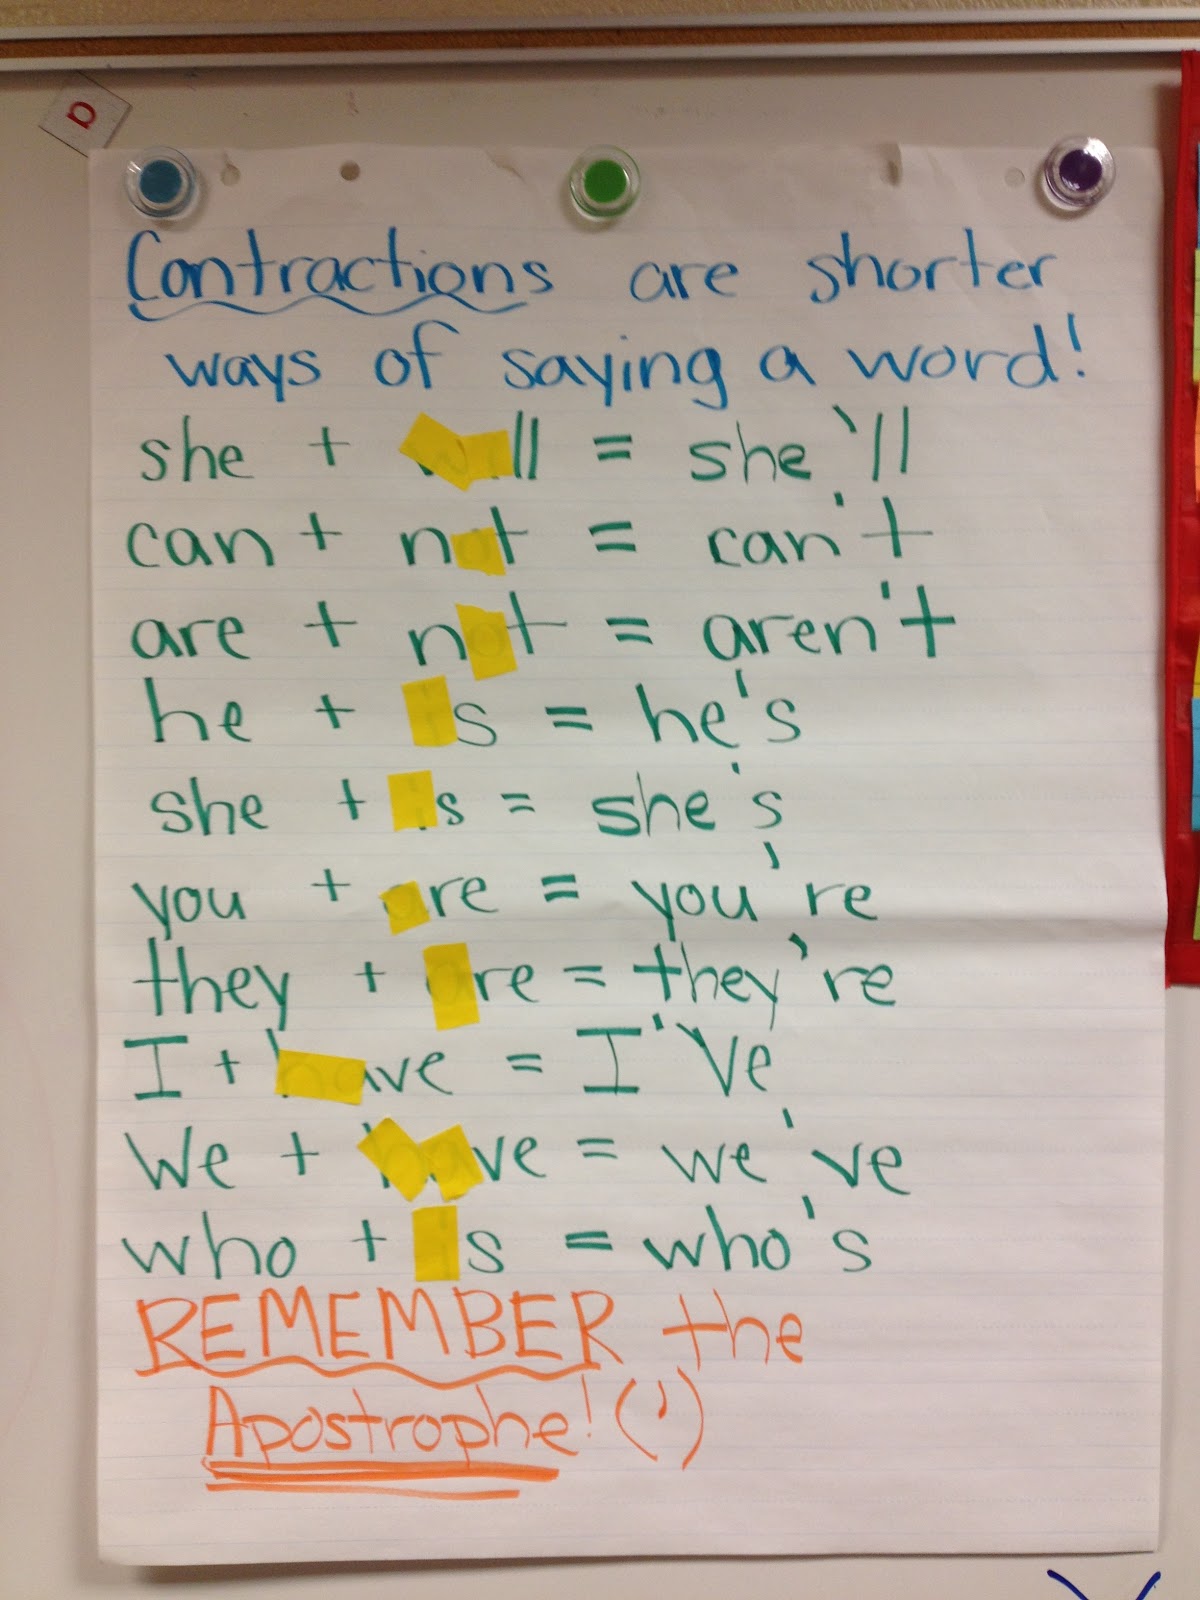 a
Contractions are shorter
ways of saying a word!
she + will = she'll
can + not = can't
are + not = aren't
he + is = he's
she + is = she's
you + are = you're
they + are = they're
I + have = I've
We + have = we've
who + is = who's
REMEMBER the
Apostrophe! (')